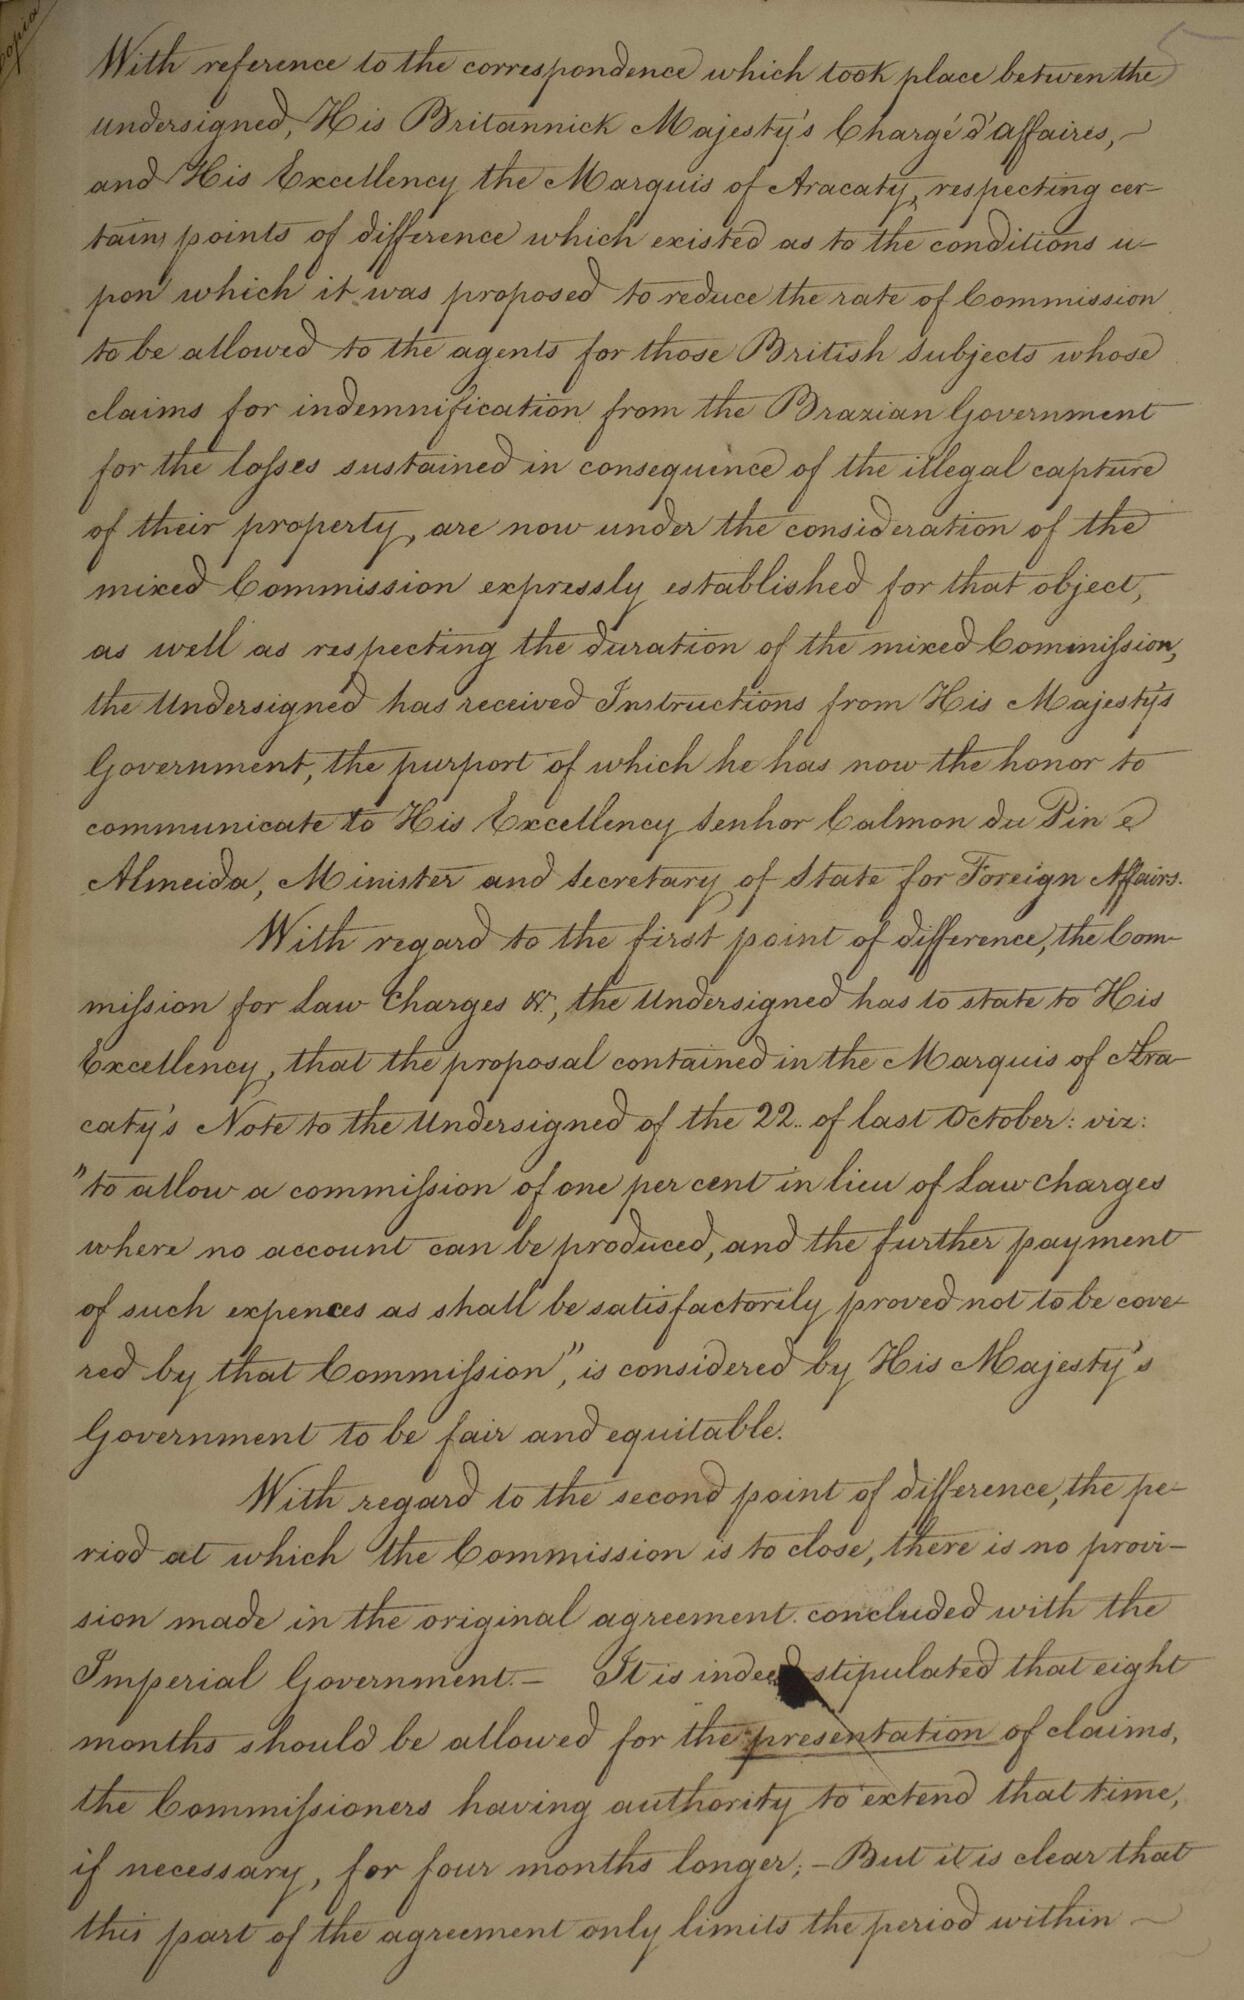 Copia
5
With reference to the correspondence which took place betwen the
undersigned, His Britannick Majesty's Chargé d'affaires,
and His Excellency the Marquis of Aracaty, respecting cer-
tain points of difference which existed as to the conditions u-
pon which it was proposed to reduce the rate of Commission
to be allowed to the agents for those British subjects whose
claims for indemnification from the Brazian Government
for the losses sustained in consequence of the illegal capture
of their property, are now under the consideration of the
mixed Commission expressly established for that object,
as well as respecting the duration of the mixed Commission,
the Undersigned has received Instructions from His Majesty's
Government, the purport of which he has now the honor to
communicate to His Excellency Senhor Calmon du Pin e
Almeida, Minister and Secretary of State for Foreign Affairs.
With regard to the first point of difference, the Com-
mission for Law Charges &c., the Undersigned has to state to His
Excellency, that the proposal contained in the Marquis of Ara-
caty's Note to the Undersigned of the 22.. of last October: viz:
"to allow a commission of one per cent in lieu of Law charges
where no account can be produced, and the further payment
of such expences as shall be satisfactorily proved not to be cove-
red by that Commission", is considered by His Majesty's
Government to be fair and equitable.
With regard to the second point of difference, the pe-
riod at which the Commission is to close, there is no provi-
sion made in the original agreement concluded with the
Imperial Government.- It is indeed stipulated that eight
months should be allowed for the presentation of claims,
the Commissioners having authority to extend that time,
if necessary, for four months longer; - But it is clear that
this part of the agreement only limits the period within